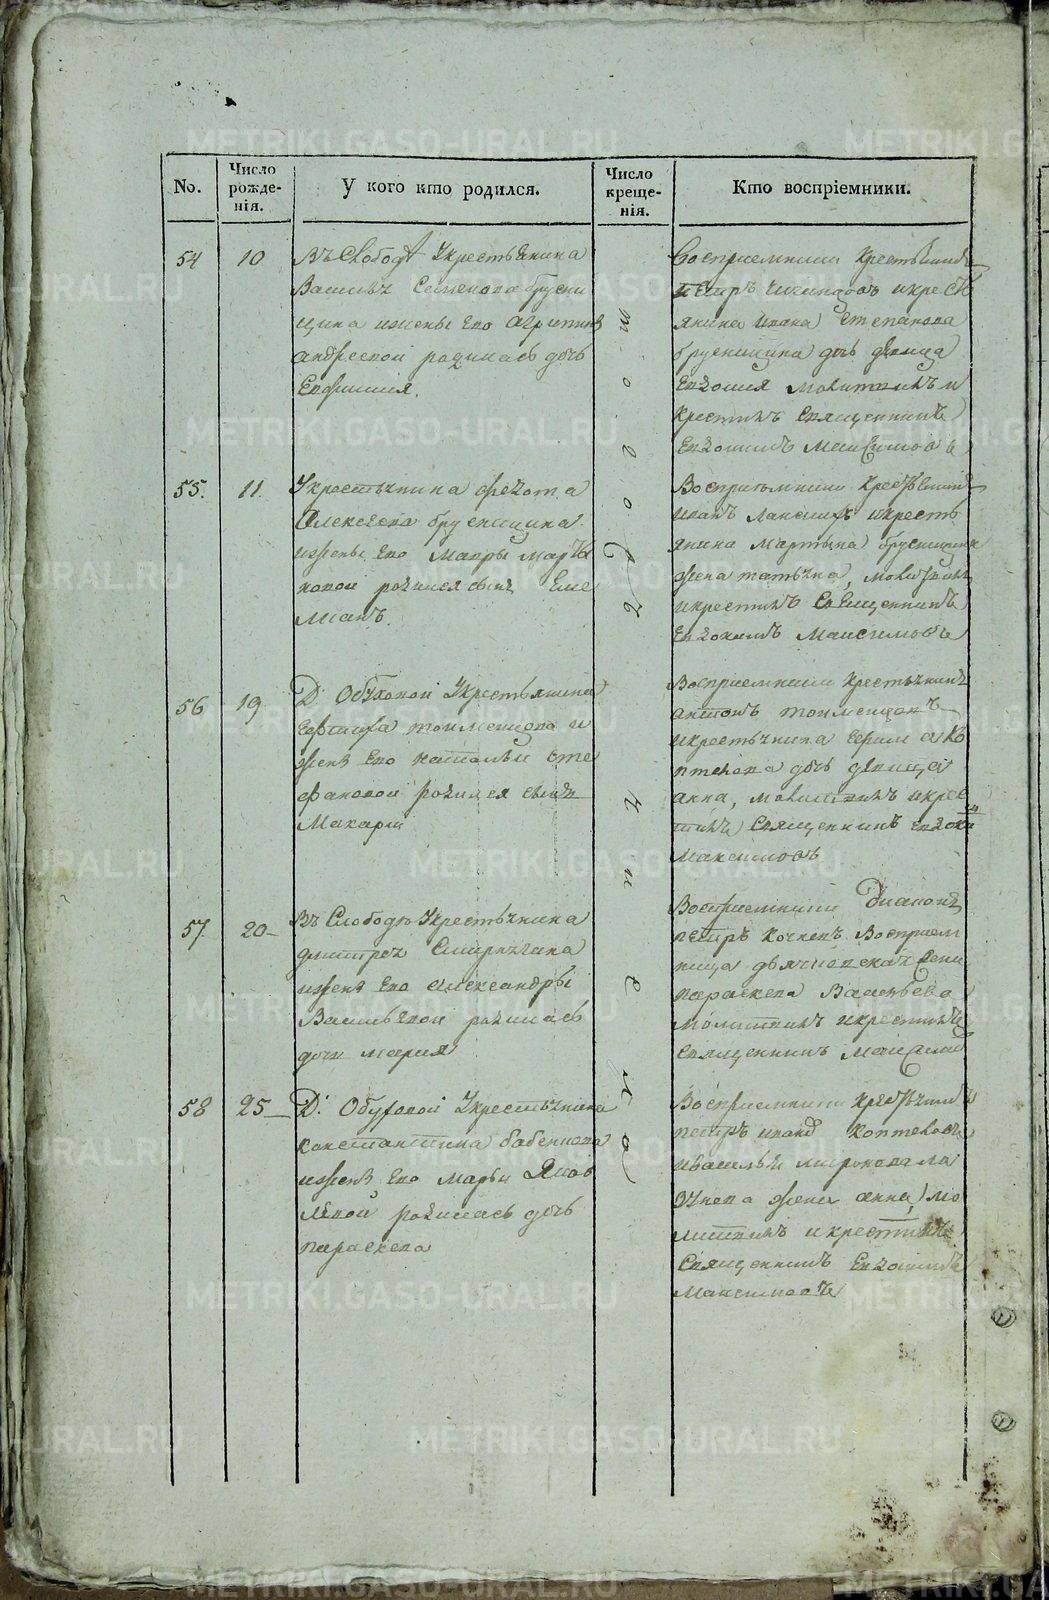 METRIKI.GASO-URAL.RU
No.
Число рожде-нія.
У кого кто родился.
Число креще-нія.
Кто воспріемники.
54
10
Въ Слободѣ Укрестьянина
Василья Семенова брусни
цына ижены Его Агрипины
андреевой родилась дочь
Евфимия.
Воспріемники крестьянинъ
Петръ икресть
янина Ивана Степанова
брусницына дочь девица
Евдокия молитвилъ и
крестилъ Священникъ
Евдокимъ Максимовъ
55.
11.
Укрестьянина Федота
Алексеева брусницына
ижены Его Мавры Марть
яновой родился сынъ Еме
лианъ.
Воспріемники крестьянинъ
иванъ икресть
янина Мартына брусницына
жена татьяна, молитвилъ
икрестилъ Священникъ
Евдокимъ Максимовъ
56
19
Д Обуховой Укрестьянина
тоименцова и
жены Его натальи Сте
фановой родился сынъ
Макарій
Воспріемники крестьянинъ
антонъ тоименцовъ
икрестьянина
дочь девица
анна, молитвилъ икрес
тилъ Священникъ Евдоки
Максимовъ
57
20
Въ Слободѣ Укрестьянина
дмитрея
ижены Его александры
Васильевой родилась
дочи мария
Воспріемники Диаконъ
петръ Воспріем
ница дьячковская
параскева Васильева
молитвилъ икрестилъ
Священникъ Максимовъ
58
25
Д. Обуховой Укрестьянина
константина бабенкова
ижены Его марьи Яков
левой родилась дочь
параскева
Воспріемники крестьянинъ
петръ Коптеловъ
ивасилья миронова
жена анна, мо
литвилъ икрестилъ
Священникъ Евдокимъ
Максимовъ
того же числа